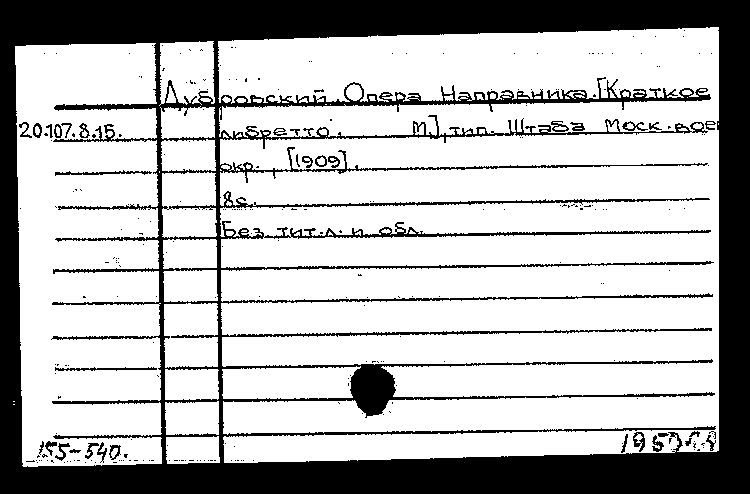 Дубровский. Опера Направника. [Краткое
20.107.8.15. либретто. М], тип. Штаба Моск. воен
окр., [1909].
8с.
Без тит.л. и обл.
155-540.